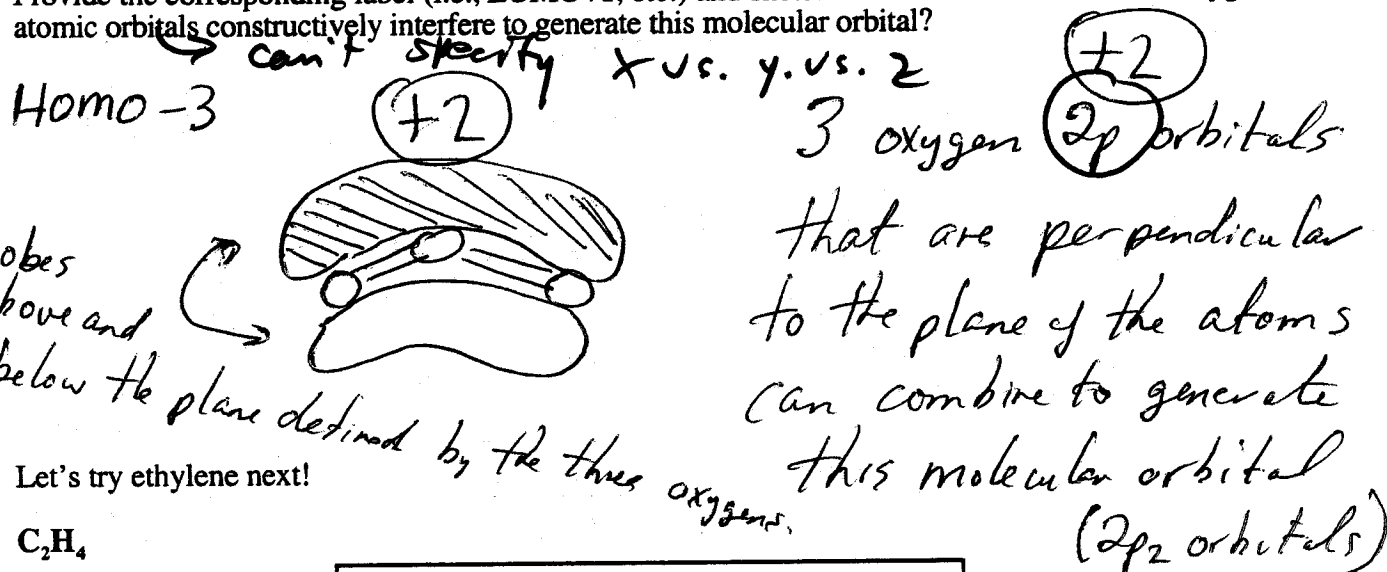 atomic orbitals constructively interfere to generate this molecular orbital?
can't specify x vs. y. vs. z
Homo -3
+2
+2
3 oxygen 2p orbitals
that are perpendicular
to the plane of the atoms
can combine to generate
this molecular orbital
(2pz orbitals)
obes
bove and
below the plane defined by the three oxygens.
Let's try ethylene next!
C₂H₄